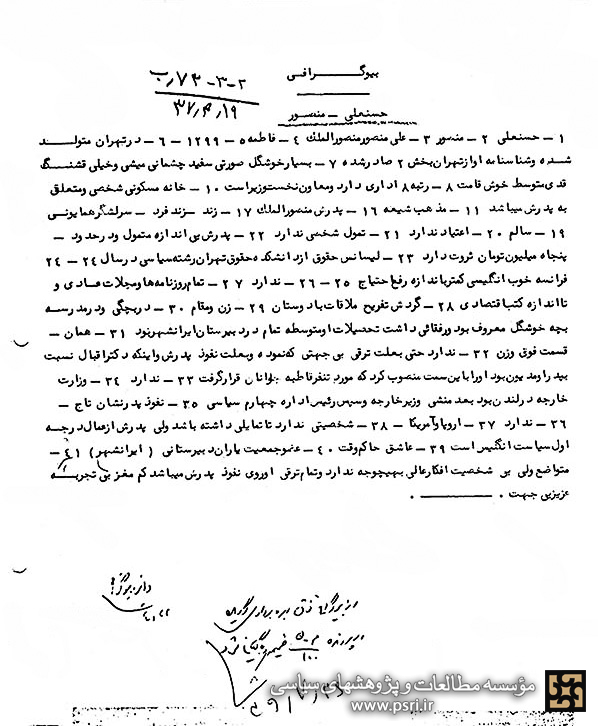 بیوگـــرافـــی
۳-۳-۷۳/ب
۳۷/۴/۱۹
حسنعلی - منصور
۱ - حسنعلی ۲ - منصور ۳ - علی منصور منصورالملک ۴ - فاطمه ۵ - ۱۲۹۹ ۶ - در تهران متولد
شده و شناسنامه او از تهران بخش ۲ صادر شده ۷ - بسیار خوشگل صورتی سفید چشمانی میشی و خیلی قشنگ
قدی متوسط خوش قامت ۸ - رتبه ۸ اداری دارد و معاون نخست وزیر است ۱۰ - خانه مسکونی شخصی و متعلق
به پدرش میباشد ۱۱ - مذهب شیعه ۱۶ - پدرش منصورالملک ۱۷ - زند - زند فرد - سرلشگر همایونی
۱۹ - سالم ۲۰ - اعتیاد ندارد ۲۱ - تمول شخصی ندارد ۲۲ - پدرش بی اندازه متمول و در حدود -
پنجاه میلیون تومان ثروت دارد ۲۳ - لیسانس حقوق از دانشکده حقوق تهران رشته سیاسی در سال ۲۴ - ۲۴
فرانسه خوب انگلیسی کمتر باندازه رفع احتیاج ۲۵ - ۲۶ - ندارد ۲۷ - تمام روزنامه ها و مجلات عادی و
تا اندازه کتب اقتصادی ۲۸ - گردش تفریح ملاقات با دوستان ۲۹ - زن و مقام ۳۰ - در بچگی و در مدرسه
بچه خوشگل معروف بود و رفقائی داشت تحصیلات او متوسطه تمام در دبیرستان ایرانشهر بود ۳۱ - همان -
قسمت فوق وزن ۳۲ - ندارد حتی بعلت ترقی بی جهتی که نموده و بعلت نفوذ پدرش و اینکه دکتر اقبال نسبت
بپدر او مدیون بود او را باین سمت منصوب کرد که مورد تنفر قاطبه جوانان قرار گرفت ۳۳ - ندارد ۳۴ - وزارت
خارجه در لندن بود بعد منشی وزیر خارجه و سپس رئیس اداره چهارم سیاسی ۳۵ - نفوذ پدرشان تاج -
۳۶ - ندارد ۳۷ - اروپا و آمریکا - ۳۸ - شخصیتی ندارد تا تمایلی داشته باشد ولی پدرش از عمال درجه
اول سیاست انگلیس است ۳۹ - عاشق حاکم وقت ۴۰ - عضو جمعیت یاران دبیرستانی (ایرانشهر) ۴۱ -
متواضع ولی بی شخصیت افکار عالی بهیچوجه ندارد و تمام ترقی او روی نفوذ پدرش میباشد کم مغز بی تجربه
عزیز بی جهت .
از بیوگرافی فوق بهره برداری گردید
مؤسسه مطالعات و پژوهشهای سیاسی
www.psri.ir